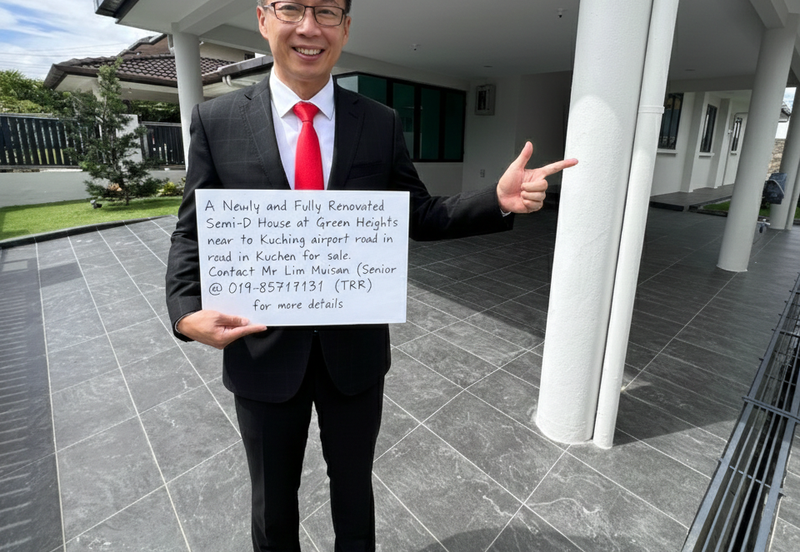 A Newly and Fully Renovated
Semi-D House at Green Heights
near to Kuching airport road in
road in Kuchen for sale.
Contact Mr Lim Muisan (Senior
@ 019-85717131 (TRR)
for more details